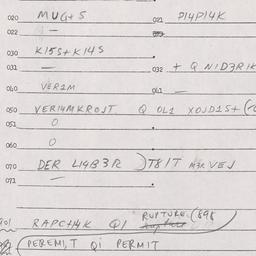 020 MUG+S 021 PI4PI4K
022 —
030 KI5S+KI4S
031 — 032 + Q NID3RIK
040 VER1M 041 —
050 VERI4MKROJT Q OL1 XOJD1S+
051 O
060 O
070 DER LI4B3R )T8IT M3R VEJ
071 —
901 RAPCH4K QI RUPTURE (898
PEREMIT QI PERMIT